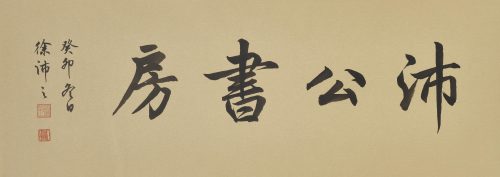 沛公書房
癸卯冬日
徐沛之